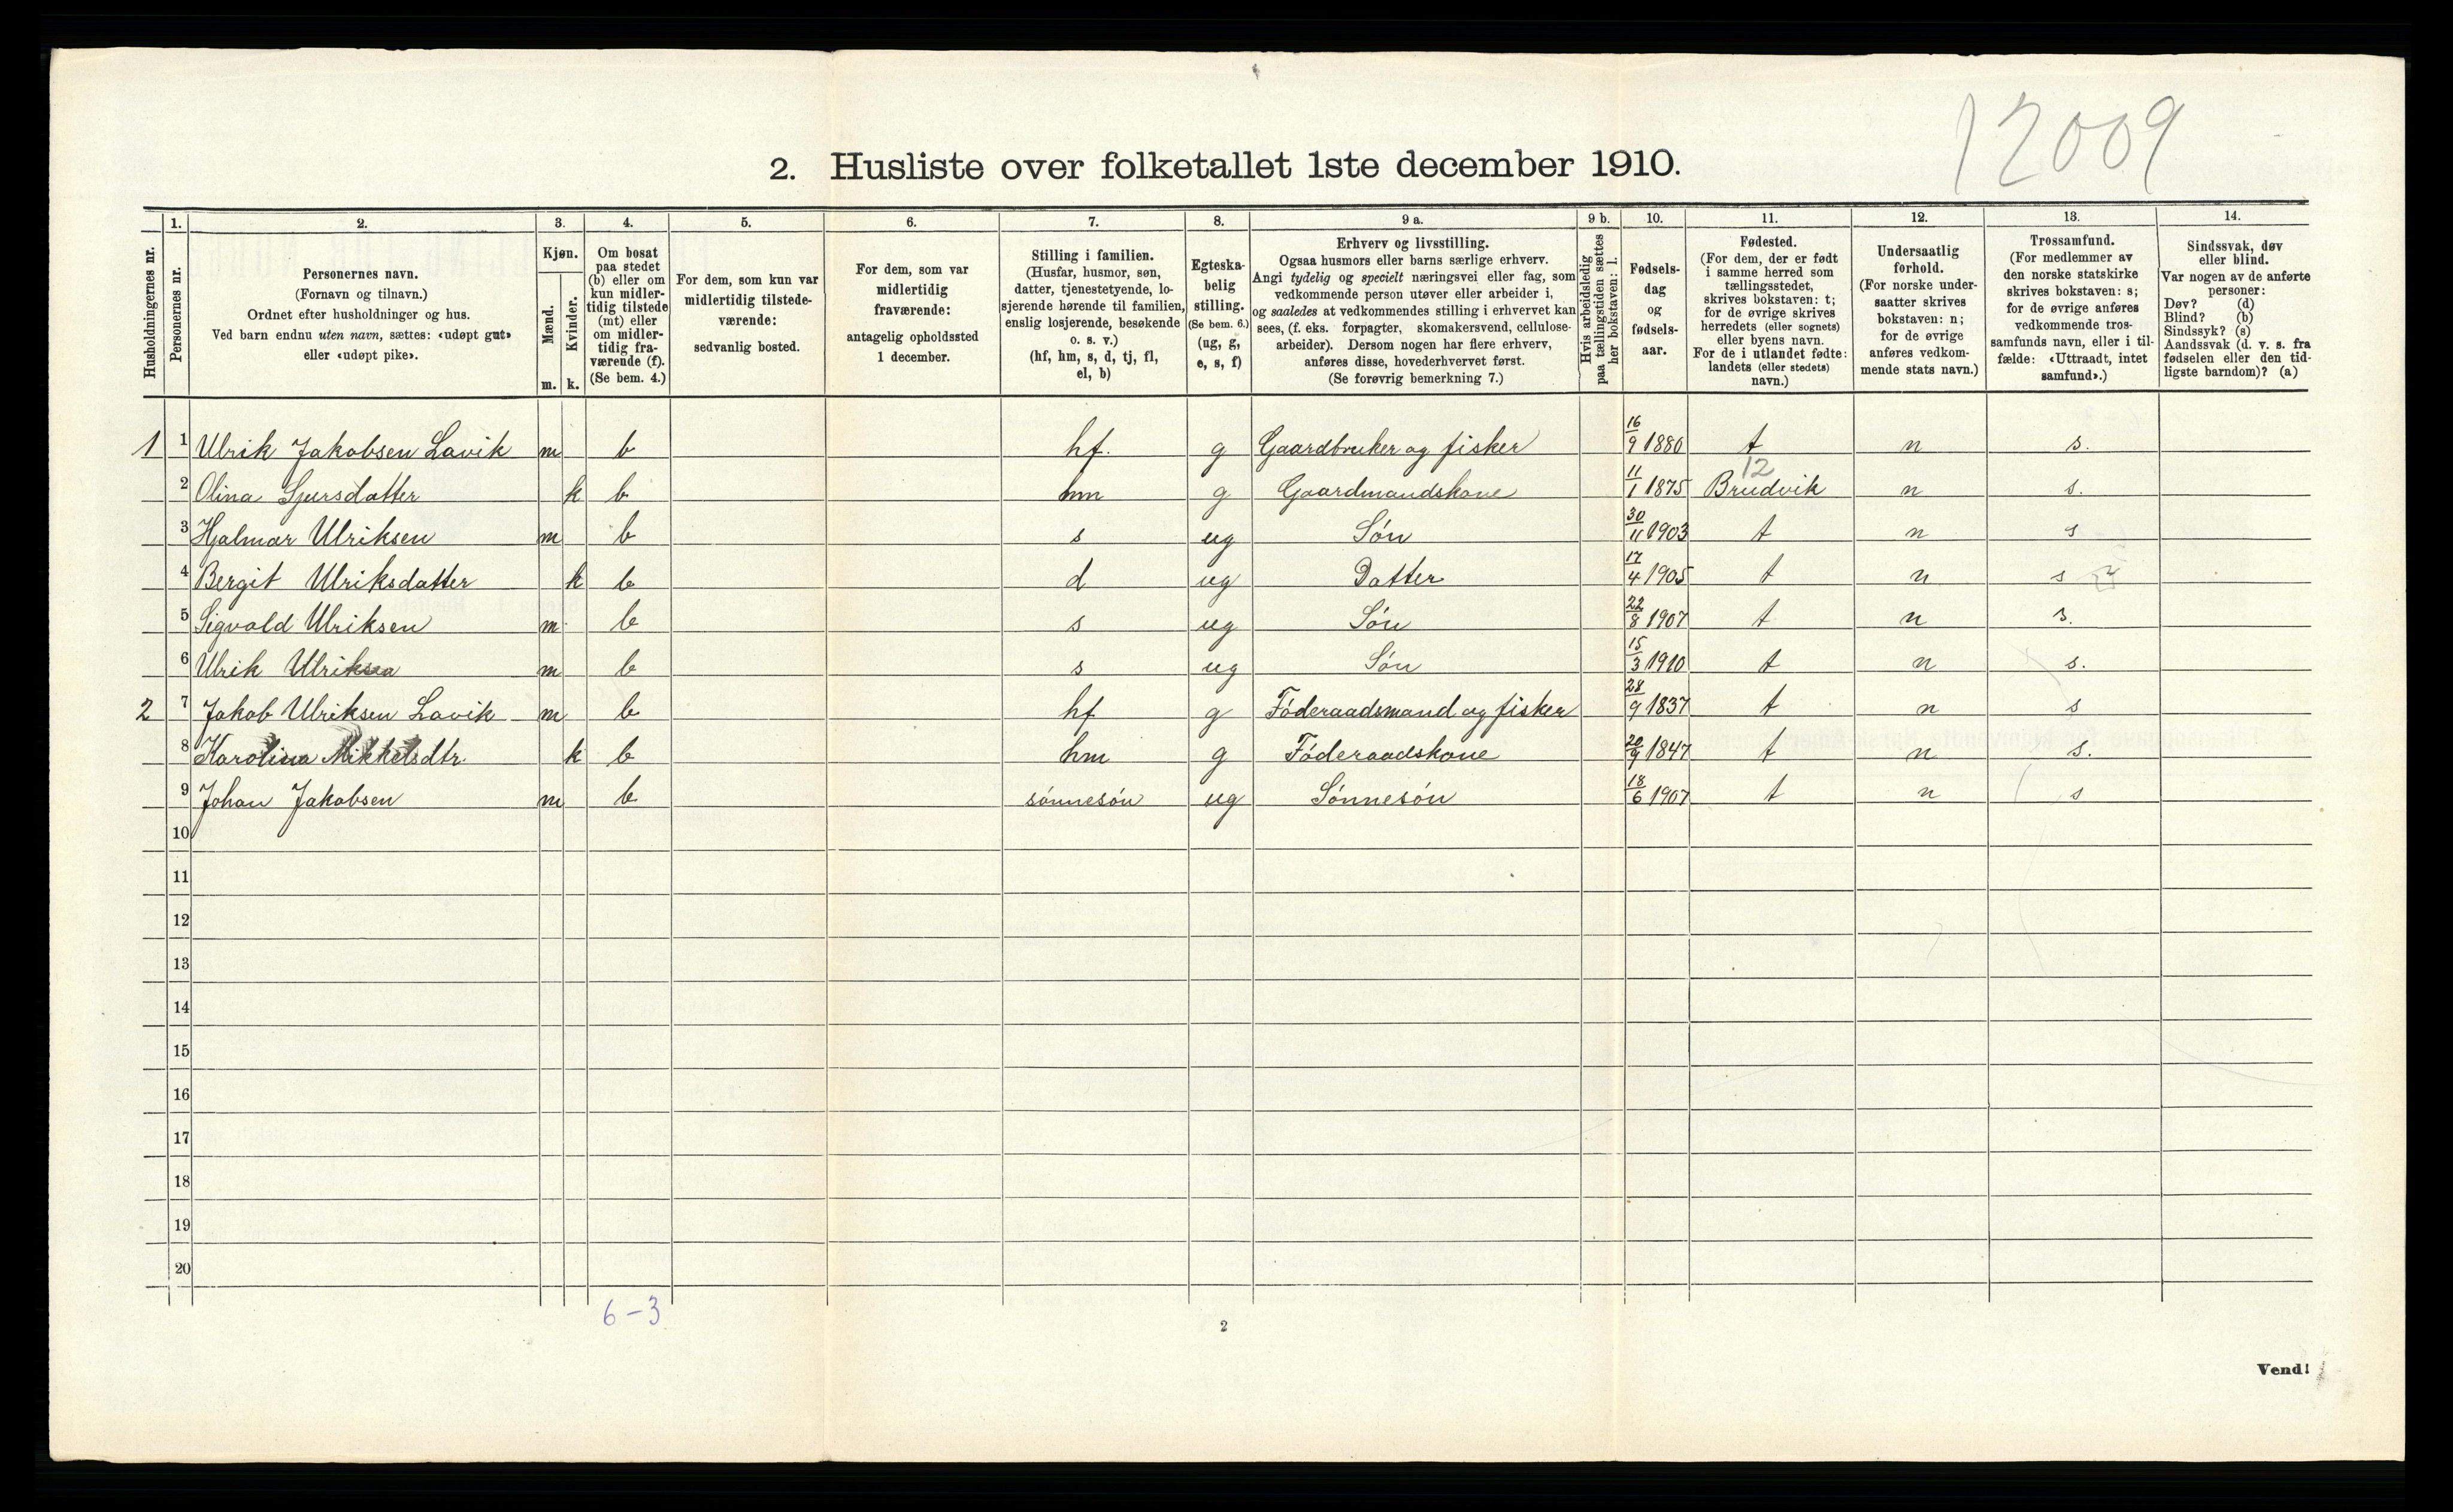 12009
2. Husliste over folketallet 1ste december 1910.
1. 2. 3. 4. 5. 6. 7. 8. 9 a. 9 b. 10. 11. 12. 13. 14.
Husholdningernes nr.
Personernes nr.
Personernes navn.
(Fornavn og tilnavn.)
Ordnet efter husholdninger og hus.
Ved barn endnu uten navn, sættes: «udøpt gut»
eller «udøpt pike».
Kjøn.
Mænd.
Kvinder.
m. k.
Om bosat
paa stedet
(b) eller om
kun midler-
tidig tilstede
(mt) eller
om midler-
tidig fra-
værende (f).
(Se bem. 4.)
For dem, som kun var
midlertidig tilstede-
værende:
sedvanlig bosted.
For dem, som var
midlertidig
fraværende:
antagelig opholdssted
1 december.
Stilling i familien.
(Husfar, husmor, søn,
datter, tjenestetyende, lo-
sjerende hørende til familien,
enslig losjerende, besøkende
o. s. v.)
(hf, hm, s, d, tj, fl,
el, b)
Egteska-
belig
stilling.
(Se bem. 6.)
(ug, g,
e, s, f)
Erhverv og livsstilling.
Ogsaa husmors eller barns særlige erhverv.
Angi tydelig og specielt næringsvei eller fag, som
vedkommende person utøver eller arbeider i,
og saaledes at vedkommendes stilling i erhvervet kan
sees, (f. eks. forpagter, skomakersvend, cellulose-
arbeider). Dersom nogen har flere erhverv,
anføres disse, hovederhvervet først.
(Se forøvrig bemerkning 7.)
Hvis arbeidsledig
paa tællingstiden sættes
her bokstaven: l.
Fødsels-
dag
og
fødsels-
aar.
Fødested.
(For dem, der er født
i samme herred som
tællingsstedet,
skrives bokstaven: t;
for de øvrige skrives
herredets (eller sognets)
eller byens navn.
For de i utlandet fødte:
landets (eller stedets)
navn.)
Undersaatlig
forhold.
(For norske under-
saatter skrives
bokstaven: n;
for de øvrige
anføres vedkom-
mende stats navn.)
Trossamfund.
(For medlemmer av
den norske statskirke
skrives bokstaven: s;
for de øvrige anføres
vedkommende tros-
samfunds navn, eller i til-
fælde: «Uttraadt, intet
samfund».)
Sindssvak, døv
eller blind.
Var nogen av de anførte
personer:
Døv? (d)
Blind? (b)
Sindssyk? (s)
Aandssvak (d. v. s. fra
fødselen eller den tid-
ligste barndom)? (a)
1 1 Ulrik Jakobsen Lavik m b hf. g Gaardbruker og fisker 16/9 1880 t n s.
2 Olina Sjursdatter k b hm g Gaardmandskone 11/1 1875 12 Brudvik n s.
3 Hjalmar Ulriksen m b s ug Søn 30/11 1903 t n s
4 Bergit Ulriksdatter k b d ug Datter 17/4 1905 t n s
5 Sigvald Ulriksen m b s ug Søn 22/8 1907 t n s.
6 Ulrik Ulriksen m b s ug Søn 15/3 1910 t n s.
2 7 Jakob Ulriksen Lavik m b hf g Føderaadsmand og fisker 28/9 1837 t n s
8 Karolina Mikkelsdtr. k b hm g Føderaadskone 20/9 1847 t n s.
9 Johan Jakobsen m b sønnesøn ug Sønnesøn 18/6 1907 t n s
10
11
12
13
14
15
16
17
18
19
20
6-3
2
Vend!